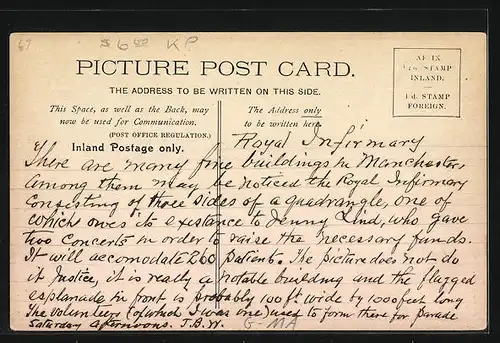 69 $6.00 KP
PICTURE POST CARD.
AFFIX
½d. STAMP
INLAND.
1d. STAMP
FOREIGN.
THE ADDRESS TO BE WRITTEN ON THIS SIDE.
This Space, as well as the Back, may
now be used for Communication.
(POST OFFICE REGULATION.)
Inland Postage only.
The Address only
to be written here.
Royal Infirmary
There are many fine buildings in Manchester,
among them may be noticed the Royal Infirmary
consisting of three sides of a quadrangle, one of
which owes its existance to Jenny Lind, who gave
two concerts in order to raise the necessary funds.
It will accomodate 260 patients. The picture does not do
it Justice, it is really a notable building and the flagged
esplanade in front is probably 100 ft. wide by 1000 feet long
The volunteers (of which I was one) used to form there for parade
Saturday afternoons. J.B.W. G-MA